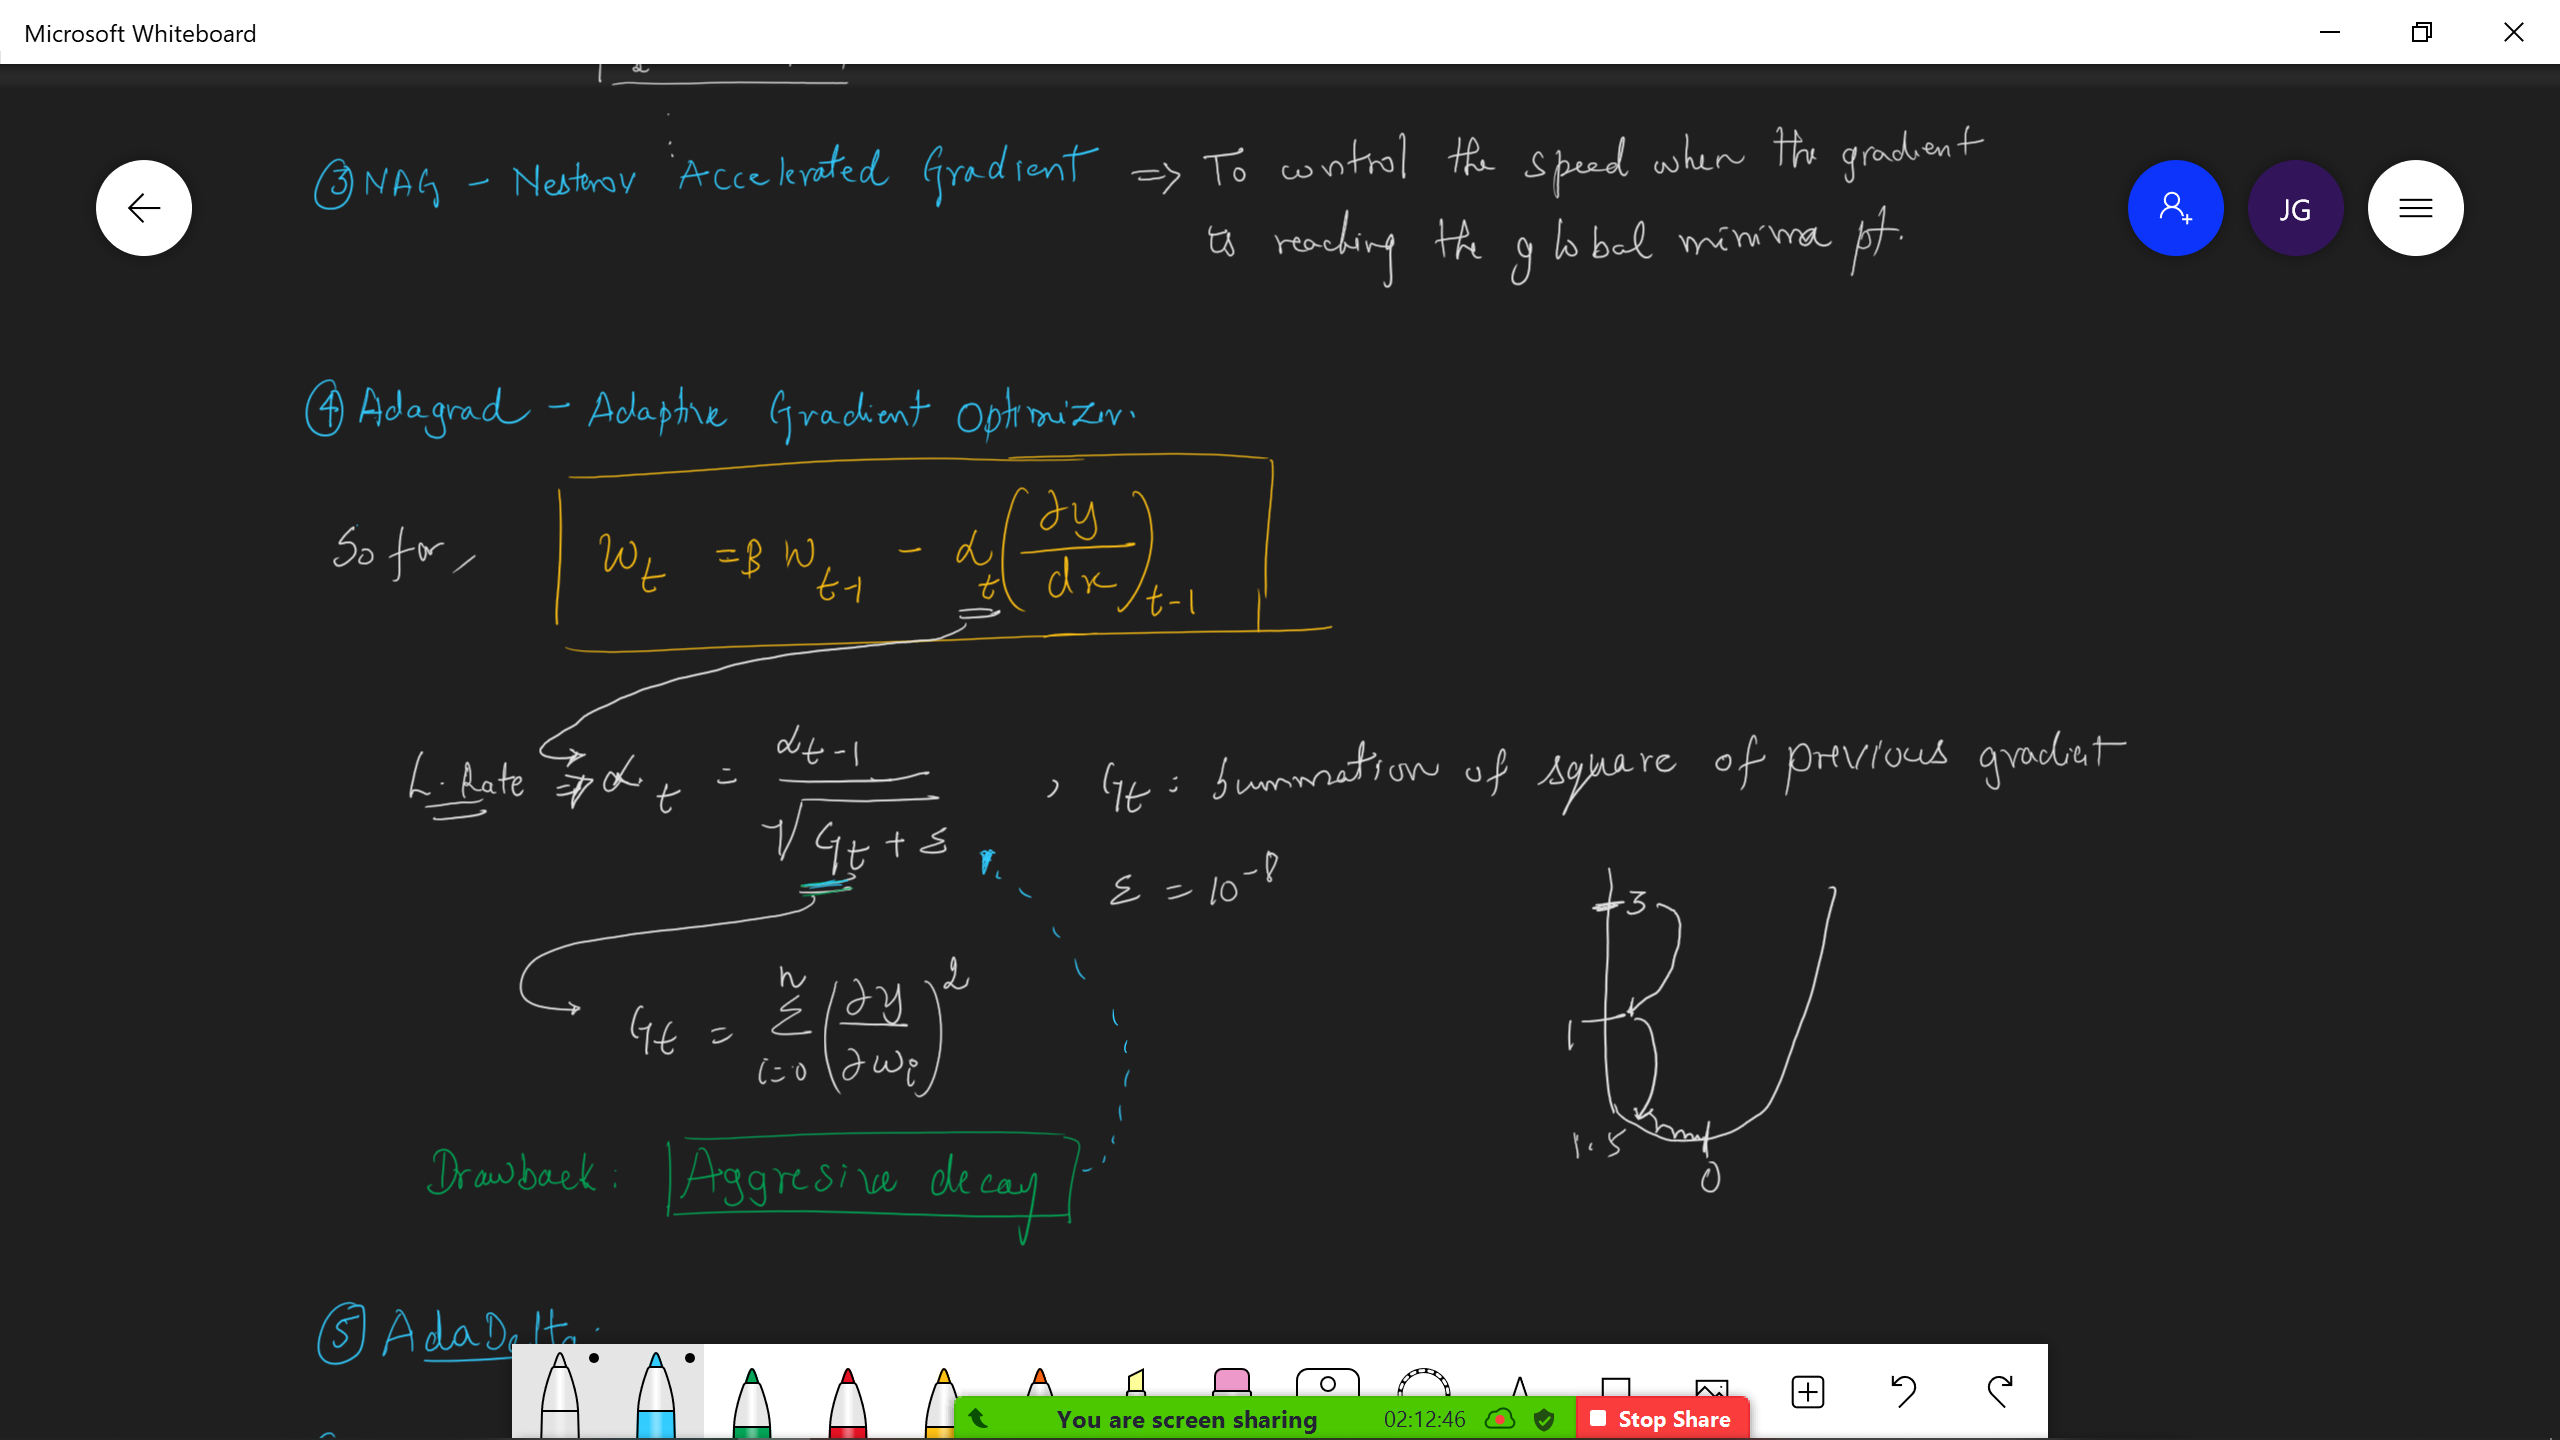 Microsoft Whiteboard
JG
③ NAG - Nesterov Accelerated Gradient => To control the speed when the gradient
is reaching the global minima pt.
④ Adagrad - Adaptive Gradient Optimizer.
So far, Wt = β Wt-1 - αt (∂y/dx)t-1
L. Rate => αt = αt-1 / √(Gt + ε) , Gt : Summation of square of previous gradiet
ε = 10^-8
Gt = Σ i=0 n (∂y/∂wi)^2
3
1
1.5
0
Drawback: Aggresive decay
⑤ AdaDelta:
You are screen sharing 02:12:46 Stop Share